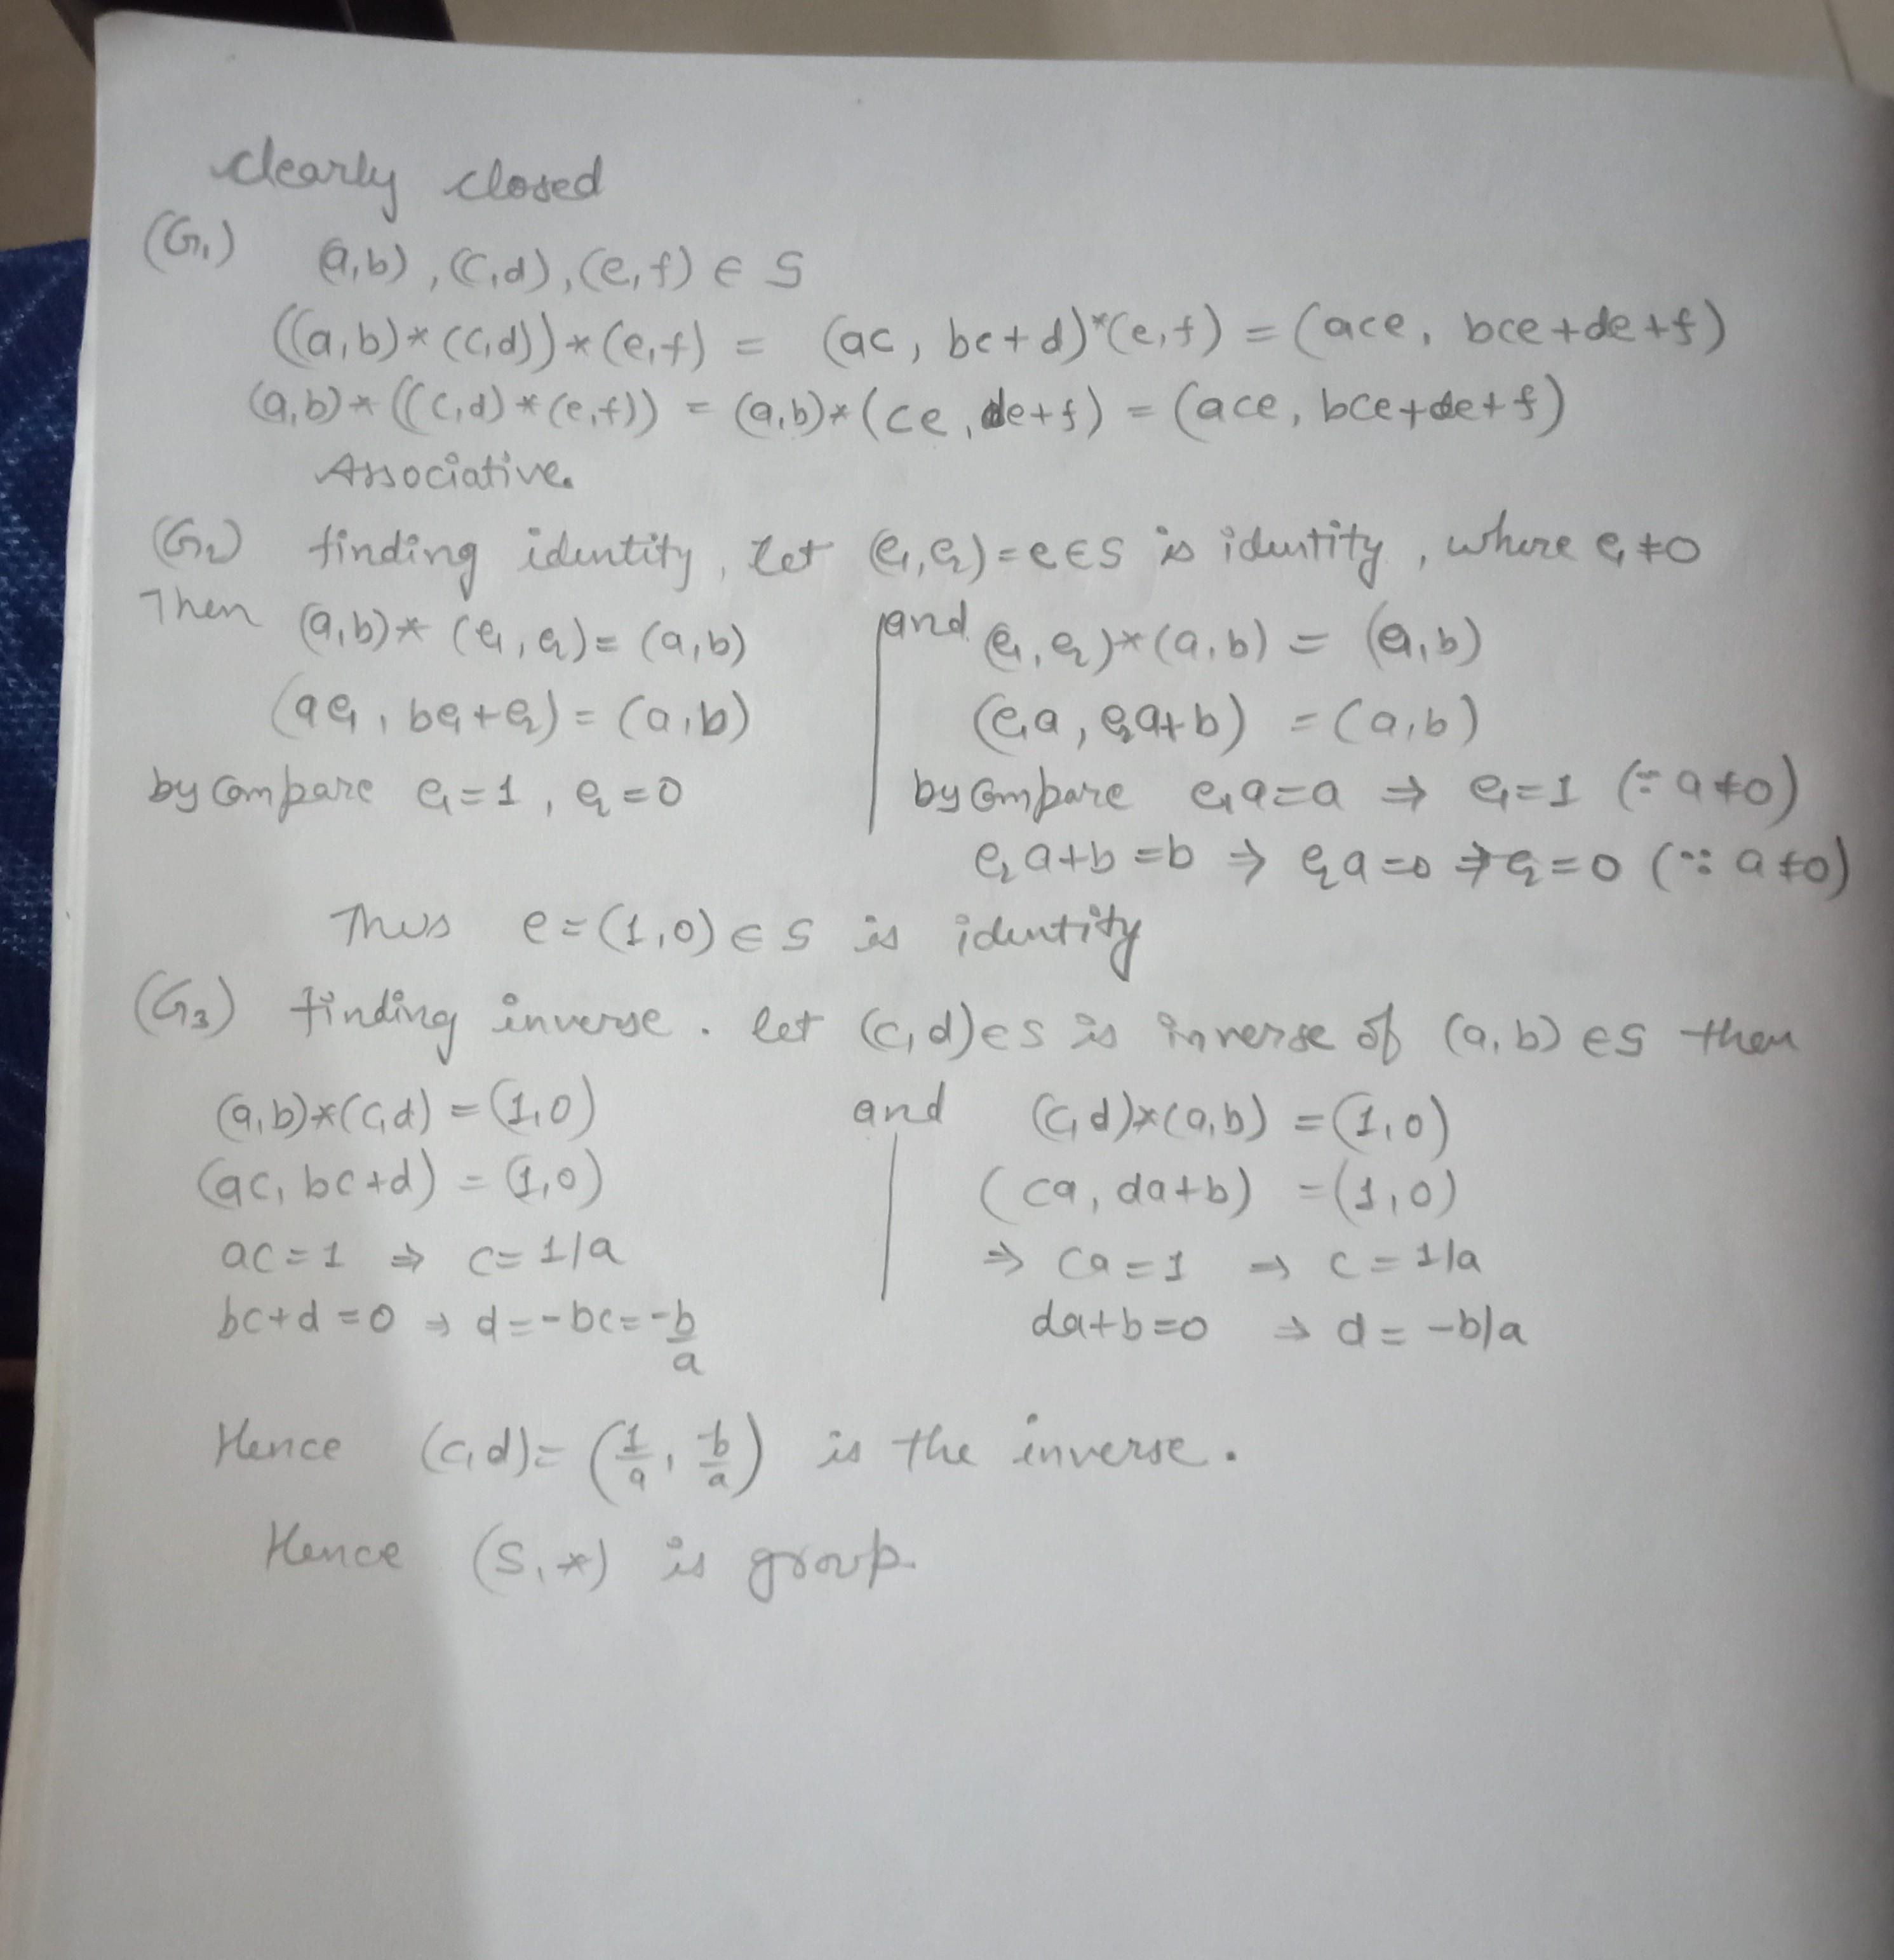 clearly closed
(G₁) (a,b), (c,d), (e,f) ∈ S
((a,b)*(c,d))*(e,f) = (ac, bc+d)*(e,f) = (ace, bce+de+f)
(a,b)*((c,d)*(e,f)) = (a,b)*(ce, de+f) = (ace, bce+de+f)
Associative.
(G₂) finding identity, let (e₁,e₂)=e∈S is identity, where e₁≠0
Then (a,b)*(e₁,e₂)=(a,b) and (e₁,e₂)*(a,b) = (a,b)
(ae₁, be₁+e₂) = (a,b) (e₁a, e₂a+b) = (a,b)
by compare e₁=1, e₂=0 by compare e₁a=a ⇒ e₁=1 (∵ a≠0)
e₂a+b=b ⇒ e₂a=0 ⇒ e₂=0 (∵ a≠0)
Thus e=(1,0)∈S is identity
(G₃) finding inverse. let (c,d)∈S is inverse of (a,b)∈S then
(a,b)*(c,d) = (1,0) and (c,d)*(a,b) = (1,0)
(ac, bc+d) = (1,0) (ca, da+b) = (1,0)
ac=1 ⇒ c=1/a ⇒ ca=1 ⇒ c=1/a
bc+d=0 ⇒ d=-bc=-b/a da+b=0 ⇒ d=-b/a
Hence (c,d)=(1/a, -b/a) is the inverse.
Hence (S,*) is group.